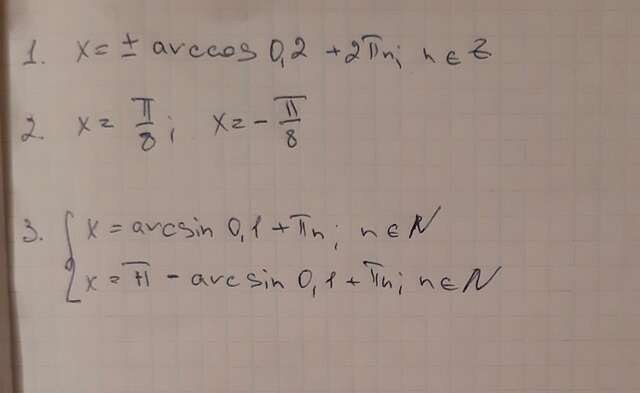 1. x = ± arccos 0,2 + 2πn; n ∈ Z
2. x = π/8; x = - π/8
3. { x = arcsin 0,1 + πn; n ∈ N
x = π - arcsin 0,1 + πn; n ∈ N